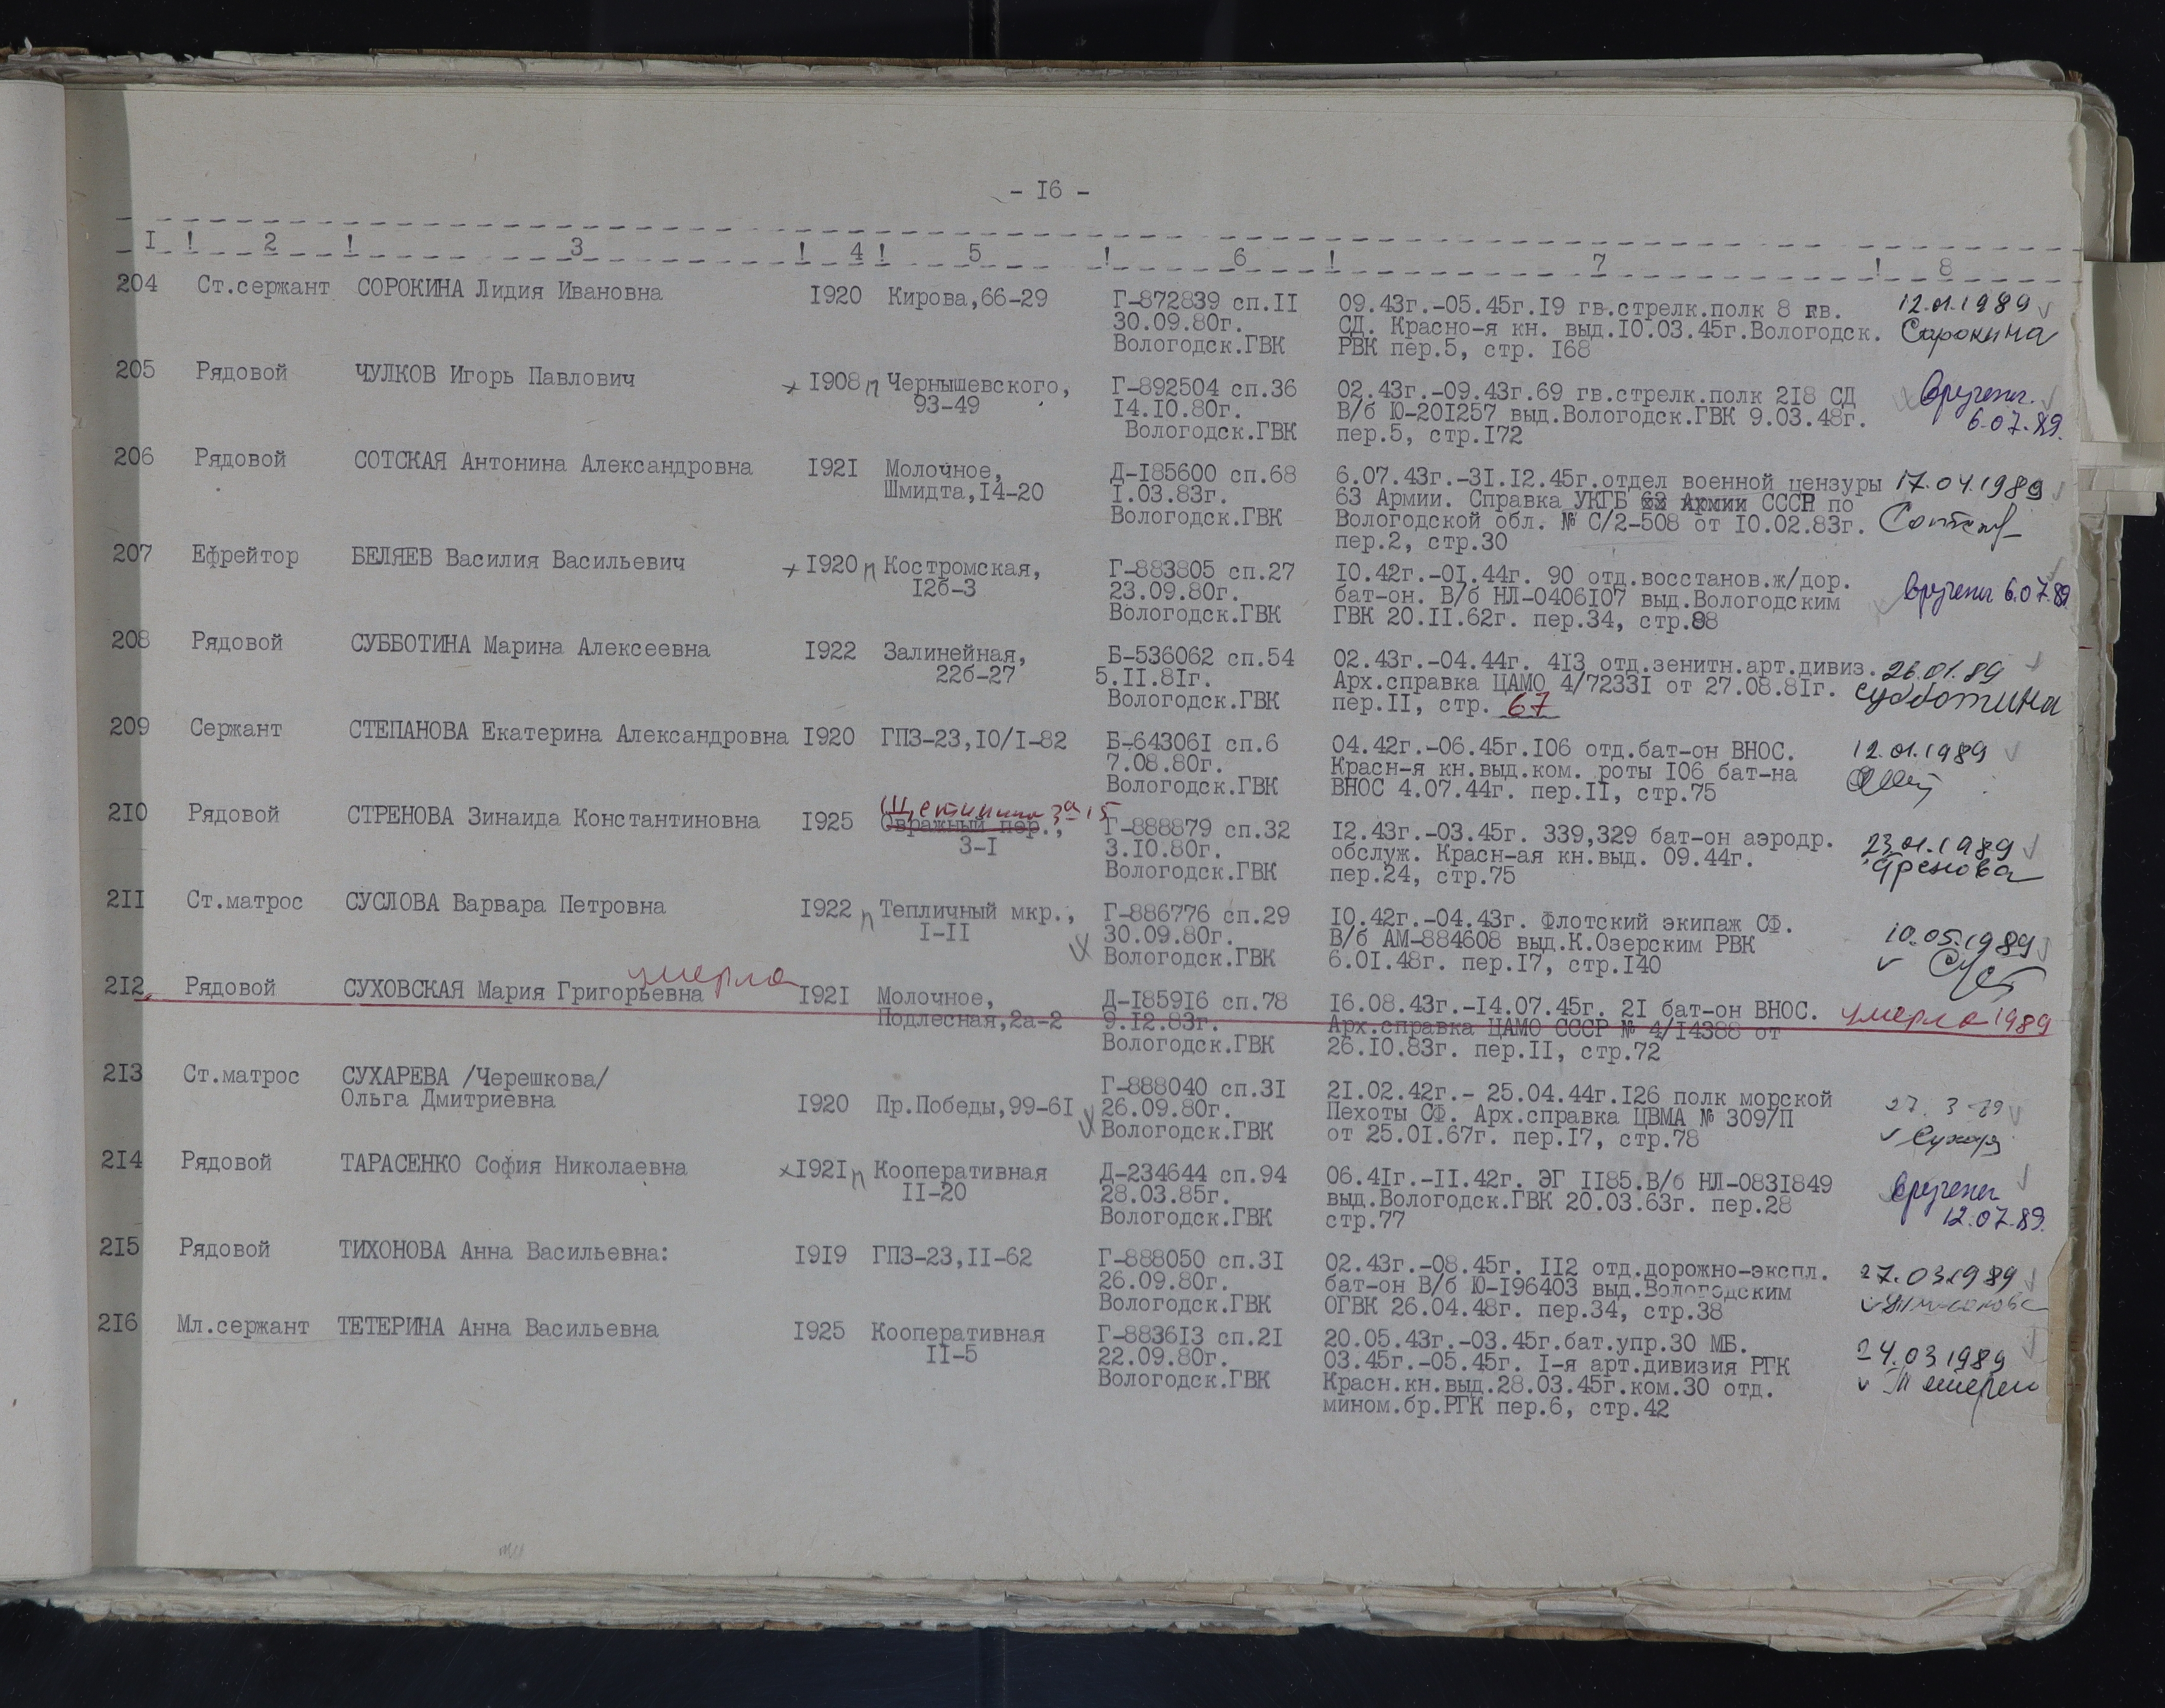 - I6 -
I ! 2 ! 3 ! 4 ! 5 ! 6 ! 7 ! 8
204 Ст.сержант СОРОКИНА Лидия Ивановна I920 Кирова,66-29 Г-872839 сп.II 09.43г.-05.45г.I9 гв.стрелк.полк 8 гв. 12.01.1989
30.09.80г. СД. Красно-я кн. выд.I0.03.45г.Вологодск. Сорокина
Вологодск.ГВК РВК пер.5, стр. I68
205 Рядовой ЧУЛКОВ Игорь Павлович I908 п Чернышевского, Г-892504 сп.36 02.43г.-09.43г.69 гв.стрелк.полк 2I8 СД вручен.
93-49 I4.I0.80г. В/б Ю-20I257 выд.Вологодск.ГВК 9.03.48г. 6.07.89.
Вологодск.ГВК пер.5, стр.I72
206 Рядовой СОТСКАЯ Антонина Александровна I92I Молочное, Д-I85600 сп.68 6.07.43г.-3I.I2.45г.отдел военной цензуры 17.04.1989
Шмидта,I4-20 I.03.83г. 63 Армии. Справка УКГБ 63 Армии СССР по
Вологодск.ГВК Вологодской обл. № С/2-508 от I0.02.83г.
пер.2, стр.30
207 Ефрейтор БЕЛЯЕВ Василия Васильевич I920 п Костромская, Г-883805 сп.27 I0.42г.-0I.44г. 90 отд.восстанов.ж/дор.
I2б-3 23.09.80г. бат-он. В/б НЛ-0406I07 выд.Вологодским вручен 6.07.89
Вологодск.ГВК ГВК 20.II.62г. пер.34, стр.88
208 Рядовой СУББОТИНА Марина Алексеевна I922 Залинейная, Б-536062 сп.54 02.43г.-04.44г. 4I3 отд.зенитн.арт.дивиз. 26.01.89
22б-27 5.II.8Iг. Арх.справка ЦАМО 4/7233I от 27.08.8Iг. Субботина
Вологодск.ГВК пер.II, стр. 67
209 Сержант СТЕПАНОВА Екатерина Александровна I920 ГПЗ-23,I0/I-82 Б-64306I сп.6 04.42г.-06.45г.I06 отд.бат-он ВНОС. 12.01.1989
7.08.80г. Красн-я кн.выд.ком. роты I06 бат-на
Вологодск.ГВК ВНОС 4.07.44г. пер.II, стр.75
Щетинина 3а-15
2I0 Рядовой СТРЕНОВА Зинаида Константиновна I925 Овражный пер., Г-888879 сп.32 I2.43г.-03.45г. 339,329 бат-он аэродр. 23.01.1989
3-I 3.I0.80г. обслуж. Красн-ая кн.выд. 09.44г. Стренова
Вологодск.ГВК пер.24, стр.75
2II Ст.матрос СУСЛОВА Варвара Петровна I922 п Тепличный мкр., Г-886776 сп.29 I0.42г.-04.43г. Флотский экипаж СФ. 10.05.1989
I-II 30.09.80г. В/б АМ-884608 выд.К.Озерским РВК
Вологодск.ГВК 6.0I.48г. пер.I7, стр.I40
умерла
2I2 Рядовой СУХОВСКАЯ Мария Григорьевна I92I Молочное, Д-I859I6 сп.78 I6.08.43г.-I4.07.45г. 2I бат-он ВНОС. умерла 1989
Подлесная,2а-2 9.I2.83г. Арх.справка ЦАМО СССР № 4/I4388 от
Вологодск.ГВК 26.I0.83г. пер.II, стр.72
2I3 Ст.матрос СУХАРЕВА /Черешкова/ Г-888040 сп.3I 2I.02.42г.- 25.04.44г.I26 полк морской
Ольга Дмитриевна I920 Пр.Победы,99-6I 26.09.80г. Пехоты СФ. Арх.справка ЦВМА № 309/П 27.3-89
Вологодск.ГВК от 25.0I.67г. пер.I7, стр.78
2I4 Рядовой ТАРАСЕНКО София Николаевна I92I п Кооперативная Д-234644 сп.94 06.4Iг.-II.42г. ЭГ II85.В/б НЛ-083I849 вручен
II-20 28.03.85г. выд.Вологодск.ГВК 20.03.63г. пер.28 12.07.89.
Вологодск.ГВК стр.77
2I5 Рядовой ТИХОНОВА Анна Васильевна: I9I9 ГПЗ-23,II-62 Г-888050 сп.3I 02.43г.-08.45г. II2 отд.дорожно-экспл. 27.03.1989
26.09.80г. бат-он В/б Ю-I96403 выд.Вологодским
Вологодск.ГВК ОГВК 26.04.48г. пер.34, стр.38
2I6 Мл.сержант ТЕТЕРИНА Анна Васильевна I925 Кооперативная Г-8836I3 сп.2I 20.05.43г.-03.45г.бат.упр.30 МБ. 24.03 1989
II-5 22.09.80г. 03.45г.-05.45г. I-я арт.дивизия РГК
Вологодск.ГВК Красн.кн.выд.28.03.45г.ком.30 отд.
мином.бр.РГК пер.6, стр.42